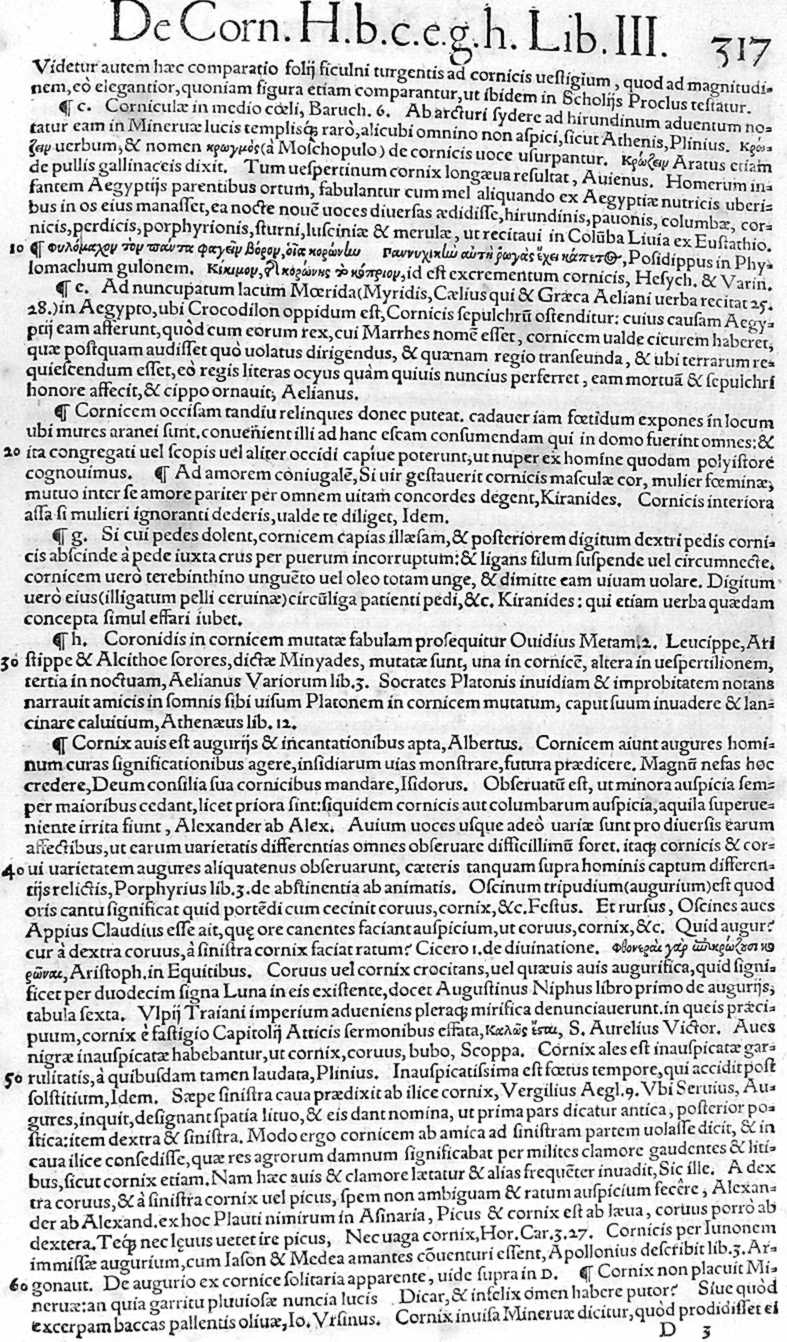 De Corn. H.b.c.e.g.h. Lib. III. 317
Videtur autem hæc comparatio folij ficulni turgentis ad cornicis uestigium, quod ad magnitudi-
nem, eò elegantior, quoniam figura etiam comparantur, ut ibidem in Scholijs Proclus testatur.
¶ c. Corniculæ in medio cœli, Baruch. 6. Ab arcturi sydere ad hirundinum aduentum no-
tatur eam in Mineruæ lucis templisq́; raro, alicubi omnino non aspici, sicut Athenis, Plinius. Κρώ-
ζειν uerbum, & nomen κρωγμὸς (à Moschopulo) de cornicis uoce usurpantur. Κρώζειν Aratus etiam
de pullis gallinaceis dixit. Tum uespertinum cornix longæua resultat, Auienus. Homerum in-
fantem Aegyptijs parentibus ortum, fabulantur cum mel aliquando ex Aegyptiæ nutricis uberi-
bus in os eius manasset, ea nocte nouē uoces diuersas ædidisse, hirundinis, pauonis, columbæ, cor-
nicis, perdicis, porphyrionis, sturni, lusciniæ & merulæ, ut recitaui in Colūba Liuia ex Eustathio.
10 ¶ Φυλόμαχον τὸν πάντα φαγεῖν βόρον, οἷα κορώνην Παννυχικὴν αὕτη ῥωγὰς ἔχει κάπετος, Posidippus in Phy-
lomachum gulonem. Κίκιμον, κορώνης τὸ κόπριον, id est excrementum cornicis, Hesych. & Varin.
¶ e. Ad nuncupatum lacum Mœrida (Myridis, Cælius qui & Græca Aeliani uerba recitat 25.
28.) in Aegypto, ubi Crocodilon oppidum est, Cornicis sepulchrū ostenditur: cuius causam Aegy-
ptij eam afferunt, quòd cum eorum rex, cui Marrhes nomē esset, cornicem ualde cicurem haberet,
quæ postquam audisset quò uolatus dirigendus, & quænam regio transeunda, & ubi terrarum re-
quiescendum esset, eò regis literas ocyus quàm quiuis nuncius perferret, eam mortuā & sepulchri
honore affecit, & cippo ornauit, Aelianus.
¶ Cornicem occisam tandiu relinques donec puteat. cadauer iam fœtidum expones in locum
ubi mures aranei sunt. conuenient illi ad hanc escam consumendam qui in domo fuerint omnes: &
20 ita congregati uel scopis uel aliter occidi capiue poterunt, ut nuper ex homine quodam polyistore
cognouimus. ¶ Ad amorem coniugalē, Si uir gestauerit cornicis masculæ cor, mulier fœminæ,
mutuo inter se amore pariter per omnem uitam concordes degent, Kiranides. Cornicis interiora
assa si mulieri ignoranti dederis, ualde te diliget, Idem.
¶ g. Si cui pedes dolent, cornicem capias illæsam, & posteriorem digitum dextri pedis corni-
cis abscinde à pede iuxta crus per puerum incorruptum: & ligans filum suspende uel circumnecte,
cornicem uerò terebinthino unguēto uel oleo totam unge, & dimitte eam uiuam uolare. Digitum
uerò eius (illigatum pelli ceruinæ) circūliga patienti pedi, &c. Kiranides: qui etiam uerba quædam
concepta simul effari iubet.
¶ h. Coronidis in cornicem mutatæ fabulam prosequitur Ouidius Metam. 2. Leucippe, Ari
30 stippe & Alcithoe sorores, dictæ Minyades, mutatæ sunt, una in cornicē, altera in uespertilionem,
tertia in noctuam, Aelianus Variorum lib. 3. Socrates Platonis inuidiam & improbitatem notans
narrauit amicis in somnis sibi uisum Platonem in cornicem mutatum, caput suum inuadere & lan-
cinare caluitium, Athenæus lib. 12.
¶ Cornix auis est augurijs & incantationibus apta, Albertus. Cornicem aiunt augures homi-
num curas significationibus agere, insidiarum uias monstrare, futura prædicere. Magnū nefas hoc
credere, Deum consilia sua cornicibus mandare, Isidorus. Obseruatū est, ut minora auspicia sem-
per maioribus cedant, licet priora sint: siquidem cornicis aut columbarum auspicia, aquila superue-
niente irrita fiunt, Alexander ab Alex. Auium uoces usque adeò uariæ sunt pro diuersis earum
affectibus, ut earum uarietatis differentias omnes obseruare difficillimū foret. itaq́; cornicis & cor-
40 ui uarietatem augures aliquatenus obseruarunt, cæteris tanquam supra hominis captum differen-
tijs relictis, Porphyrius lib. 3. de abstinentia ab animatis. Oscinum tripudium (augurium) est quod
oris cantu significat quid portēdi cum cecinit coruus, cornix, &c. Festus. Et rursus, Oscines aues
Appius Claudius esse ait, quę ore canentes faciant auspicium, ut coruus, cornix, &c. Quid augur?
cur à dextra coruus, à sinistra cornix faciat ratum? Cicero 1. de diuinatione. Φθονεραὶ γὰρ ἐπικρώζουσι κο
ρῶναι, Aristoph. in Equitibus. Coruus uel cornix crocitans, uel quæuis auis augurifica, quid signi-
ficet per duodecim signa Luna in eis existente, docet Augustinus Niphus libro primo de augurijs,
tabula sexta. Vlpij Traiani imperium adueniens pleraq́; mirifica denunciauerunt. in queis præci-
puum, cornix è fastigio Capitolij Atticis sermonibus effata, Καλῶς ἔσται, S. Aurelius Victor. Aues
nigræ inauspicatæ habebantur, ut cornix, coruus, bubo, Scoppa. Cornix ales est inauspicatæ gar-
50 rulitatis, à quibusdam tamen laudata, Plinius. Inauspicatissima est fœtus tempore, qui accidit post
solstitium, Idem. Sæpe sinistra caua prædixit ab ilice cornix, Vergilius Aegl. 9. Vbi Seruius, Au-
gures, inquit, designant spatia lituo, & eis dant nomina, ut prima pars dicatur antica, posterior po-
stica: item dextra & sinistra. Modo ergo cornicem ab amica ad sinistram partem uolasse dicit, & in
caua ilice consedisse, quæ res agrorum damnum significabat per milites clamore gaudentes & liti-
bus, sicut cornix etiam. Nam hæc auis & clamore lætatur & alias frequēter inuadit, Sic ille. A dex
tra coruus, & à sinistra cornix uel picus, spem non ambiguam & ratum auspicium fecêre, Alexan-
der ab Alexand. ex hoc Plauti nimirum in Asinaria, Picus & cornix est ab læua, coruus porrò ab
dextera. Teq́; nec læuus uetet ire picus, Nec uaga cornix, Hor. Car. 3. 27. Cornicis per Iunonem
immissæ augurium, cum Iason & Medea amantes cōuenturi essent, Apollonius describit lib. 3. Ar-
60 gonaut. De augurio ex cornice solitaria apparente, uide supra in D. ¶ Cornix non placuit Mi-
neruæ: an quia garritu pluuiosæ nuncia lucis Dicar, & infelix omen habere putor? Siue quòd
excerpam baccas pallentis oliuæ, Io. Vrsinus. Cornix inuisa Mineruæ dicitur, quòd prodidisset ei
D 3